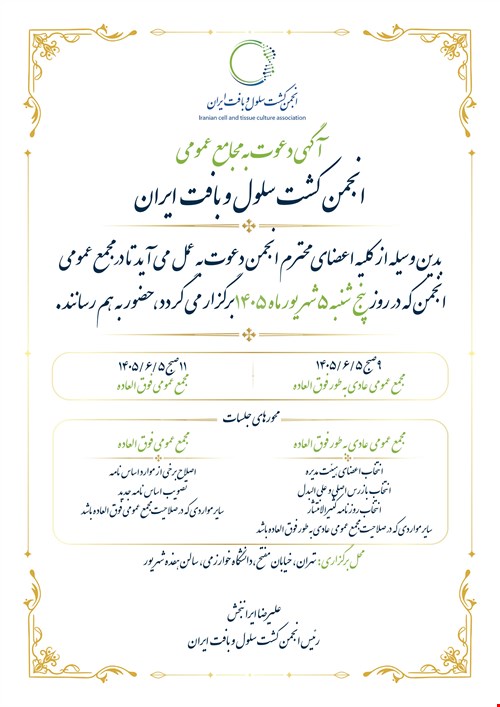 انجمن کشت سلول و بافت ایران
Iranian cell and tissue culture association
آگهی دعوت به مجامع عمومی
انجمن کشت سلول و بافت ایران
بدین وسیله از کلیه اعضای محترم انجمن دعوت به عمل می آید تا در مجمع عمومی
انجمن که در روز پنج شنبه ۵ شهریور ماه ۱۴۰۵ برگزار می گردد، حضور به هم رسانند.
۹ صبح ۱۴۰۵/۶/۵
مجمع عمومی عادی به طور فوق العاده
۱۱ صبح ۱۴۰۵/۶/۵
مجمع عمومی فوق العاده
محورهای جلسات
مجمع عمومی عادی به طور فوق العاده
انتخاب اعضای هیئت مدیره
انتخاب بازرس اصلی و علی البدل
انتخاب روزنامه کثیرالانتشار
سایر مواردی که در صلاحیت مجمع عمومی عادی به طور فوق العاده باشد
مجمع عمومی فوق العاده
اصلاح برخی از موارد اساس نامه
تصویب اساس نامه جدید
سایر مواردی که در صلاحیت مجمع عمومی فوق العاده باشد
محل برگزاری: تهران، خیابان مفتح، دانشگاه خوارزمی، سالن هفده شهریور
علیرضا ایرانبخش
رئیس انجمن کشت سلول و بافت ایران